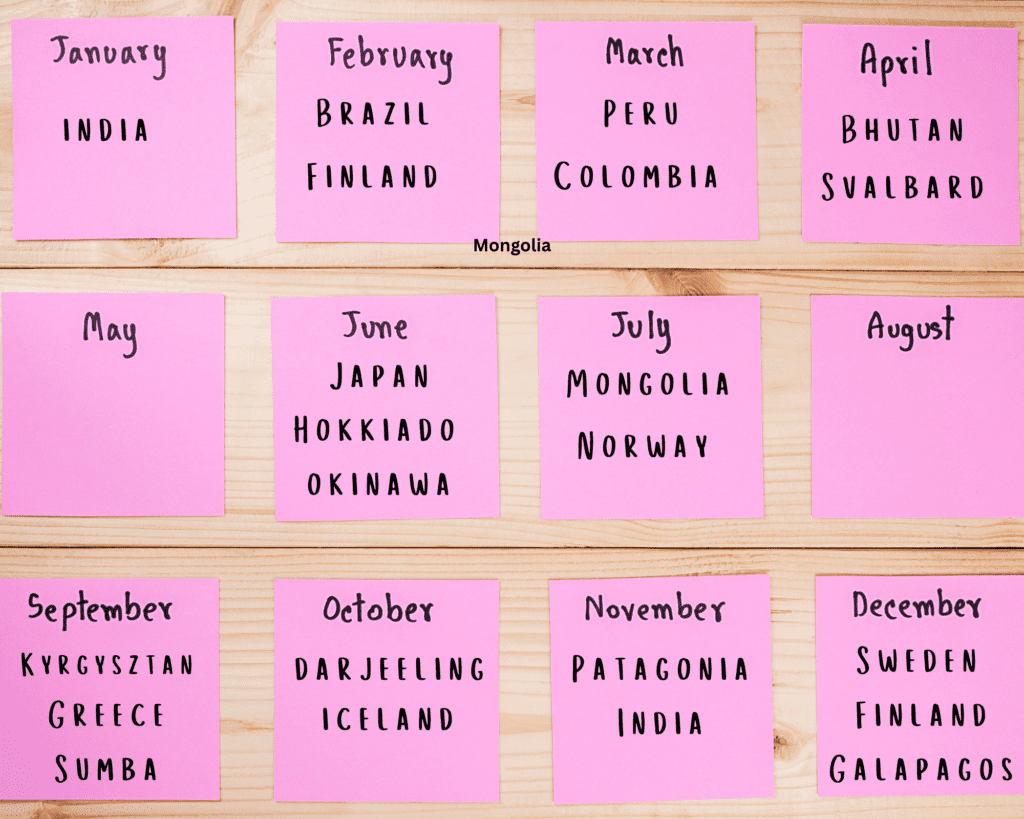 January
INDIA
February
BRAZIL
FINLAND
March
PERU
COLOMBIA
April
BHUTAN
SVALBARD
Mongolia
May
June
JAPAN
HOKKIADO
OKINAWA
July
MONGOLIA
NORWAY
August
September
KYRGYSZTAN
GREECE
SUMBA
October
DARJEELING
ICELAND
November
PATAGONIA
INDIA
December
SWEDEN
FINLAND
GALAPAGOS